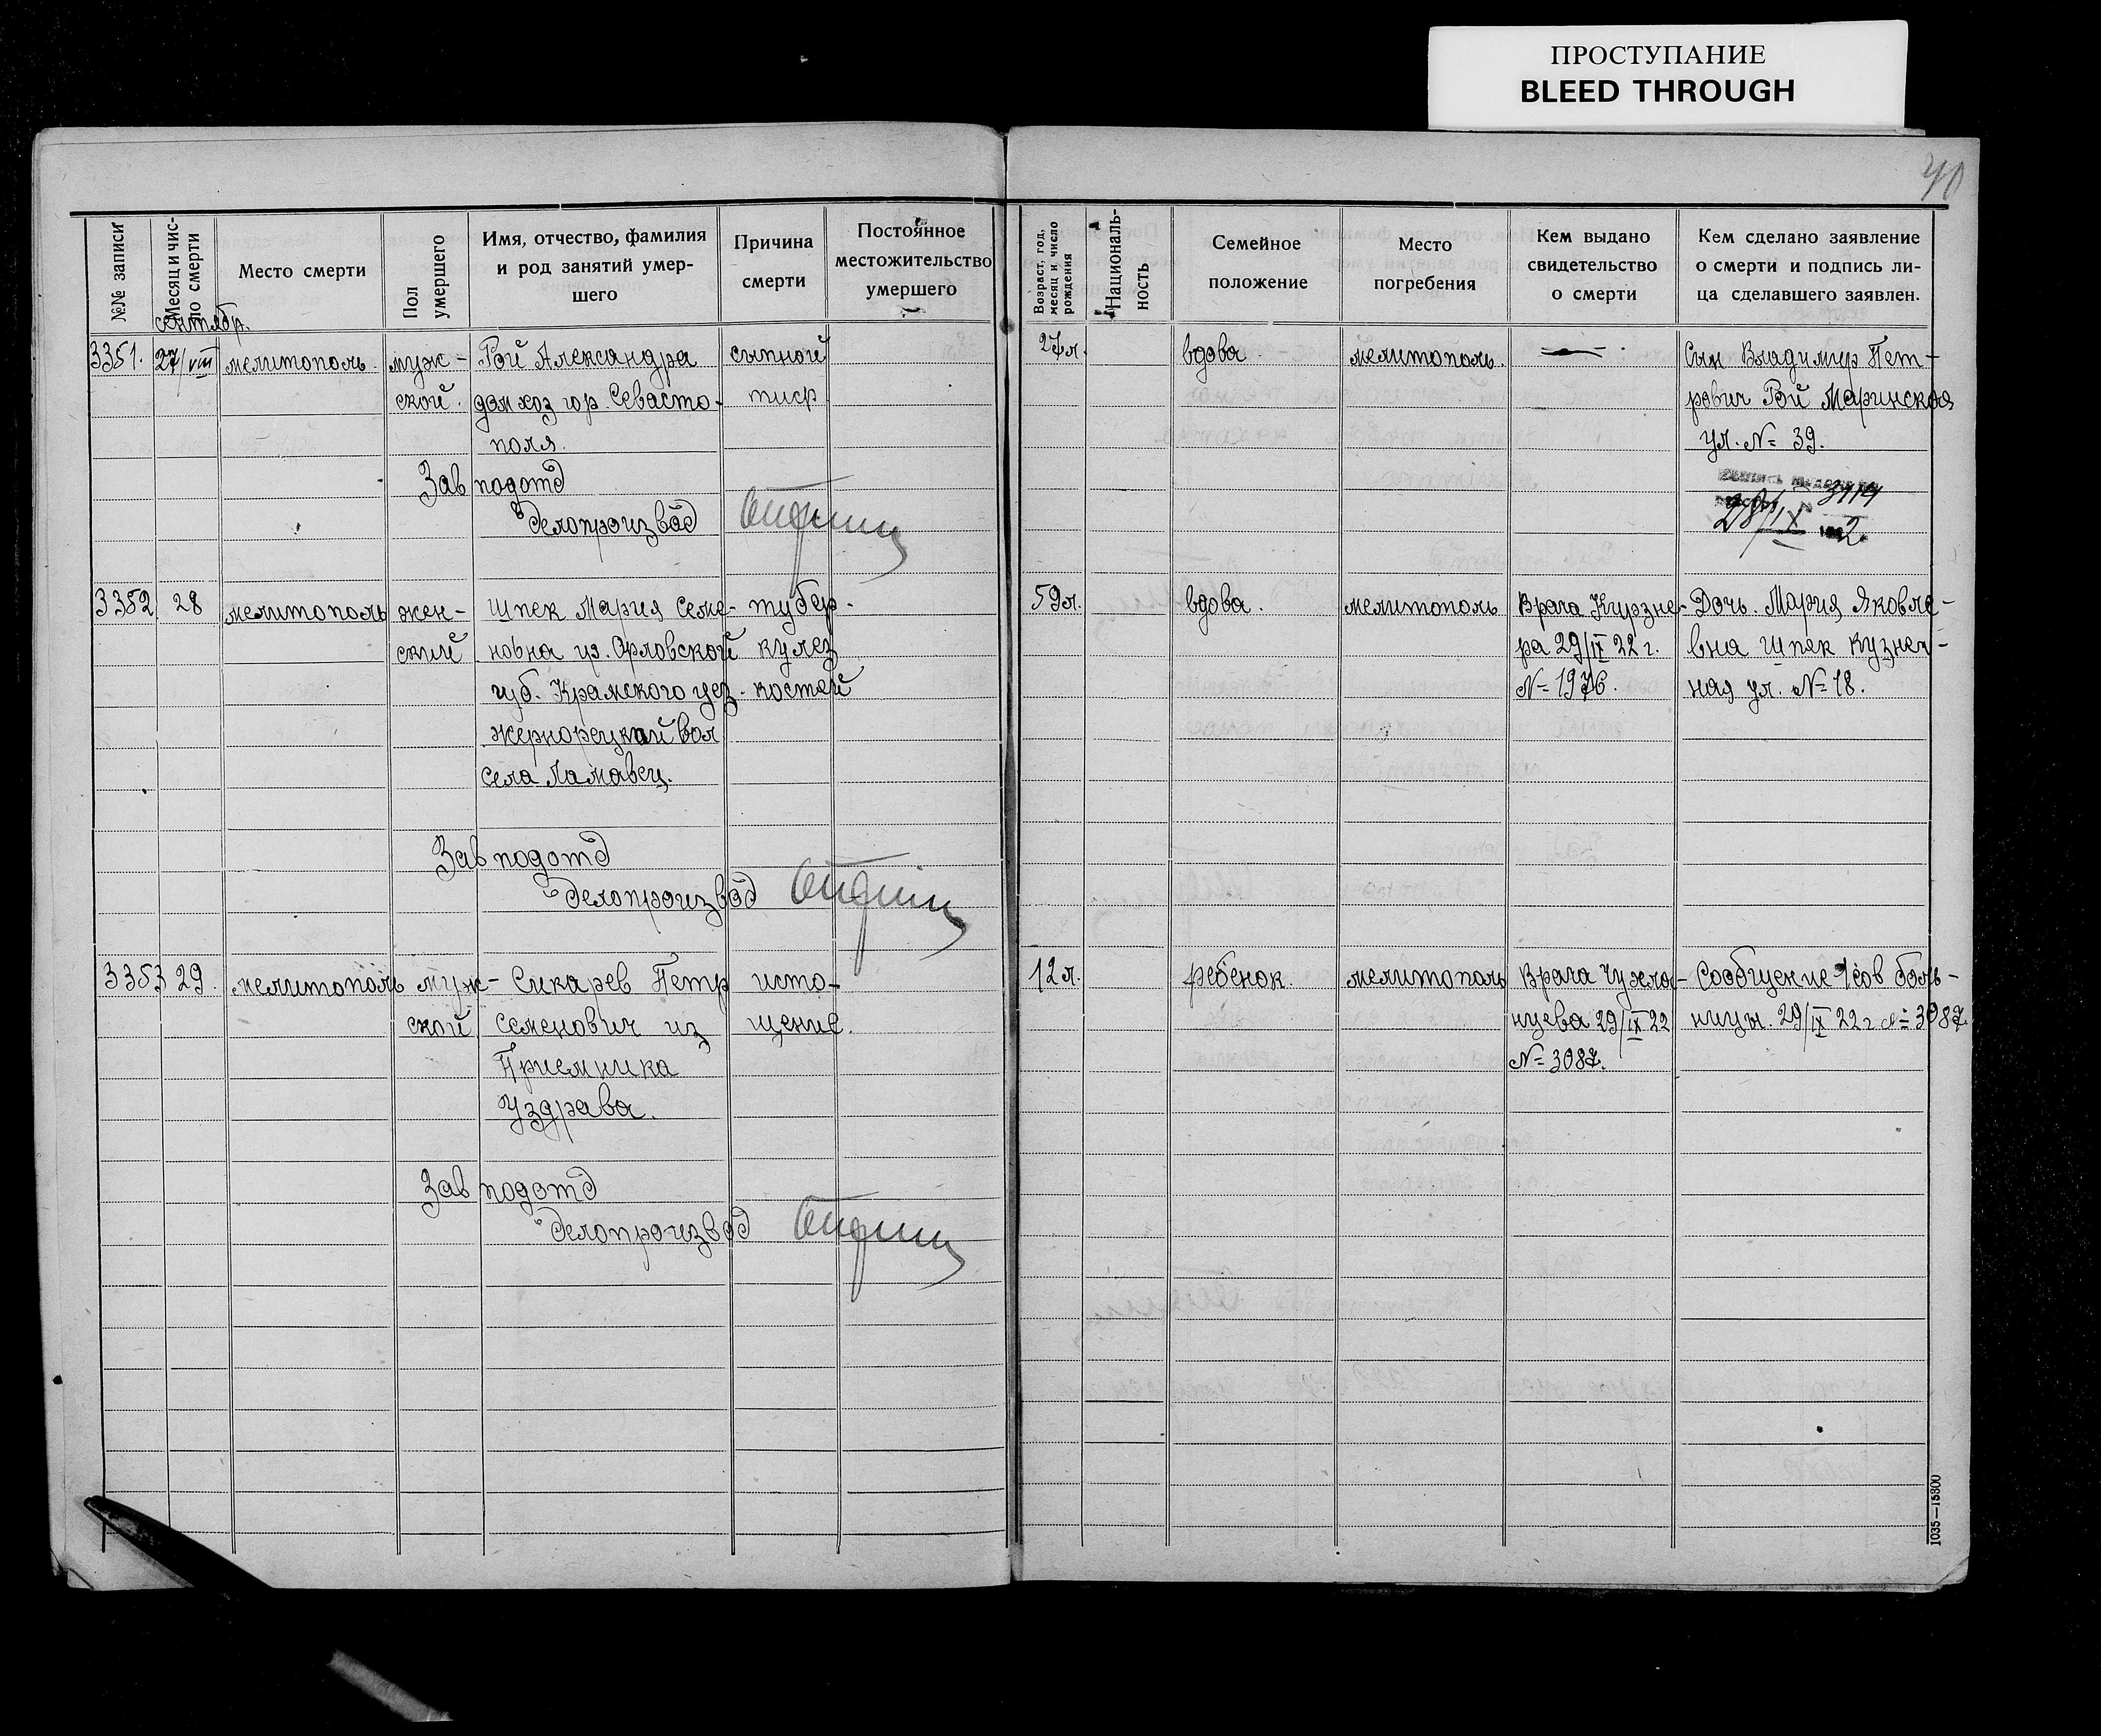 ПРОСТУПАНИЕ
BLEED THROUGH
40
№№ записи
Месяц и чис-
ло смерти
Место смерти
Пол
умершего
Имя, отчество, фамилия
и род занятий умер-
шего
Причина
смерти
Постоянное
местожительство
умершего
Возраст, год,
месяц и число
рождения
Националь-
ность
Семейное
положение
Место
погребения
Кем выдано
свидетельство
о смерти
Кем сделано заявление
о смерти и подпись ли-
ца сделавшего заявлен.
сентябр.
3351. 27/VIII мелитополь. муж-
ской.
Рой Александра
дом хоз гор. Севасто-
поля.
сыпной
тиф
27л.
вдова.
мелитополь.
Сын Владимир Пет-
рович Рой Маринская
ул. № 39.
28/IX 2.
Зав подотд
Делопроизвод
3352. 28 мелитополь жен-
ский
Шпек Мария Семе-
новна из. Орловской
губ. Крамского уез.
жернорецкой вол
села Ламавец.
тубер-
кулез
костей
59л.
вдова.
мелитополь
Врача Курзне-
ра 29/IX 22 г.
№ 1976.
Дочь. Мария Яковле-
вна Шпек Кузнеч-
ная ул. № 18.
Зав подотд
Делопроизвод
3353 29. мелитополь муж-
ской
Сикарев Петр
Семенович из
Приемника
Уздрава.
исто-
щение.
12л.
ребенок.
мелитополь
Врача Чухла-
нцева 29/IX 22
№ 3087.
Сообщение 1 сов боль-
ницы. 29/IX 22 г № 3087.
Зав подотд
Делопроизвод
1035—15800